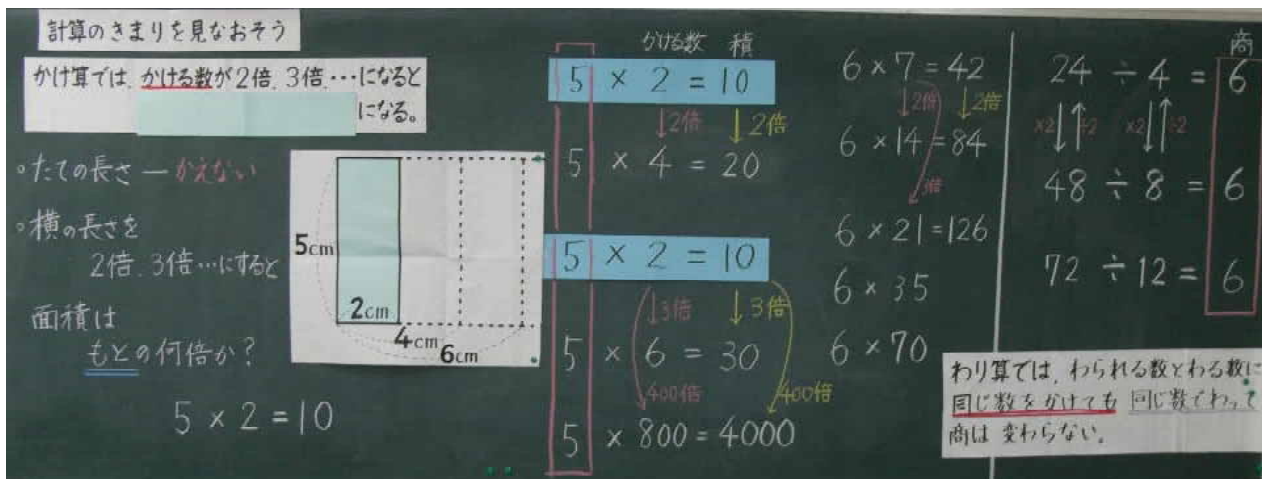 計算のきまりを見なおそう
かけ算では、かける数が2倍、3倍…になると
になる。
◦たての長さ — かえない
◦横の長さを
2倍、3倍…にすると
面積は
もとの何倍か?
5 × 2 = 10
5cm
2cm
4cm
6cm
かける数 積
5 × 2 = 10
↓2倍 ↓2倍
5 × 4 = 20
5 × 2 = 10
↓3倍 ↓3倍
5 × 6 = 30
400倍 400倍
5 × 800 = 4000
6 × 7 = 42
↓2倍 ↓2倍
6 × 14 = 84
3倍
6 × 21 = 126
6 × 35
6 × 70
商
24 ÷ 4 = 6
×2 ↓↑ ÷2 ×2 ↓↑ ÷2
48 ÷ 8 = 6
72 ÷ 12 = 6
わり算では、わられる数とわる数に
同じ数をかけても 同じ数でわって
商は 変わらない。